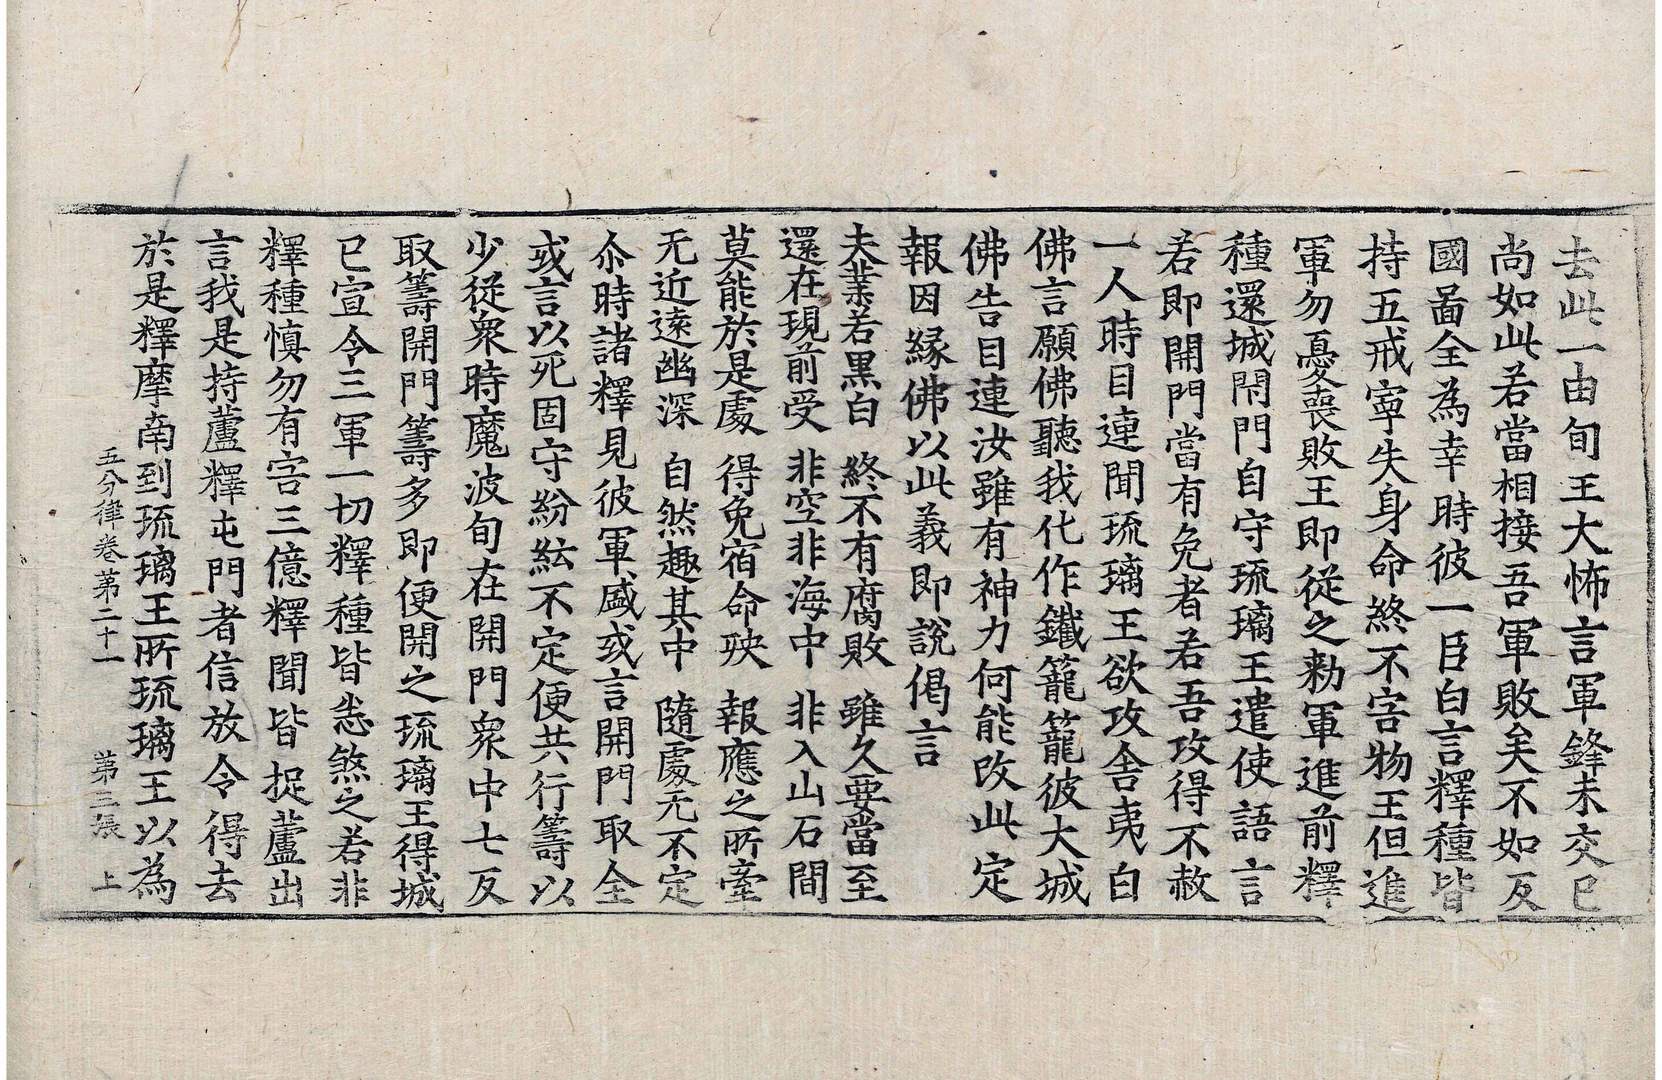 去此一由旬王大怖言軍鋒未交已
尚如此若當相接吾軍敗矣不如反
國啚全為幸時彼一臣白言釋種皆
持五戒寧失身命終不害物王但進
軍勿憂喪敗王即從之勑軍進前釋
種還城閇門自守琉璃王遣使語言
若即開門當有免者若吾攻得不赦
一人時目連聞琉璃王欲攻舍夷白
佛言願佛聽我化作鐵籠籠彼大城
佛告目連汝雖有神力何能改此定
報因緣佛以此義即說偈言
夫業若黑白 終不有腐敗 雖久要當至
還在現前受 非空非海中 非入山石間
莫能於是處 得免宿命殃 報應之所牽
无近遠幽深 自然趣其中 隨處无不定
尒時諸釋見彼軍盛或言開門取全
或言以死固守紛紜不定便共行籌以
少從衆時魔波旬在開門衆中七反
取籌開門籌多即便開之琉璃王得城
已宣令三軍一切釋種皆悉煞之若非
釋種慎勿有害三億釋聞皆捉蘆出
言我是持蘆釋屯門者信放令得去
於是釋摩南到琉璃王所琉璃王以為
五分律卷第二十一 第三張 上